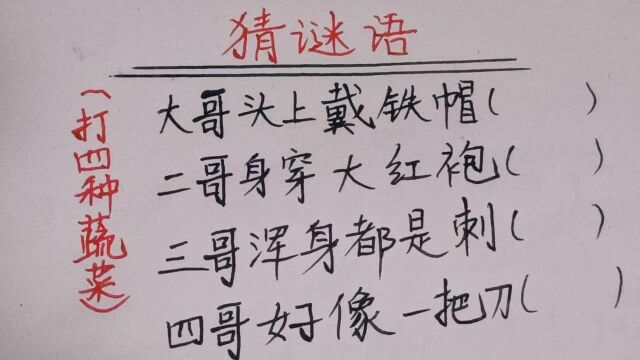 猜谜语
(打四种蔬菜)
大哥头上戴铁帽( )
二哥身穿大红袍( )
三哥浑身都是刺( )
四哥好像一把刀( )